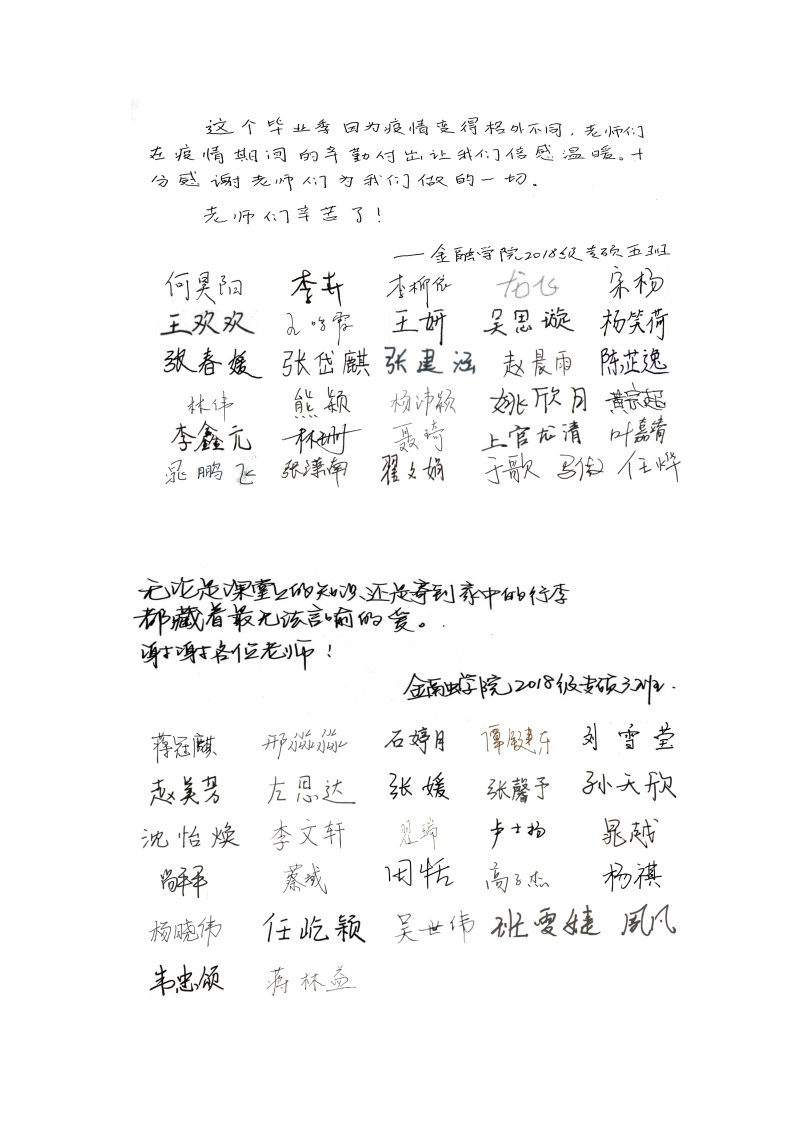 这个毕业季因为疫情变得格外不同，老师们
在疫情期间的辛勤付出让我们倍感温暖。十
分感谢老师们为我们做的一切。
老师们辛苦了！
——金融学院2018级专硕五班
何昊阳 李卉 李柳依 龙飞 宋杨
王欢欢 王妍 吴思璇 杨笑荷
张春媛 张岱麒 张建涵 赵晨雨 陈芷逸
林伟 熊颖 杨沛颖 姚欣月 黄宗超
李鑫元 林珊 聂琦 上官尤清 叶嘉青
晁鹏飞 张潇南 翟文娟 于歌 马傲 任烨
无论是课堂上的知识，还是寄到家中的行李
都藏着最无法言喻的爱。
谢谢各位老师！
金融学院2018级专硕三班.
蒋冠麒 邢淼淼 石婷月 谭殿东 刘雪莹
赵美芳 左思达 张媛 张馨予 孙天欣
沈怡焕 李文轩 翟瑞 卢士扬 晁越
尚菲菲 蔡斌 田恬 高子杰 杨祺
杨晓伟 任屹颖 吴世伟 班雯婕 凤凡
韦忠颂 蒋林益